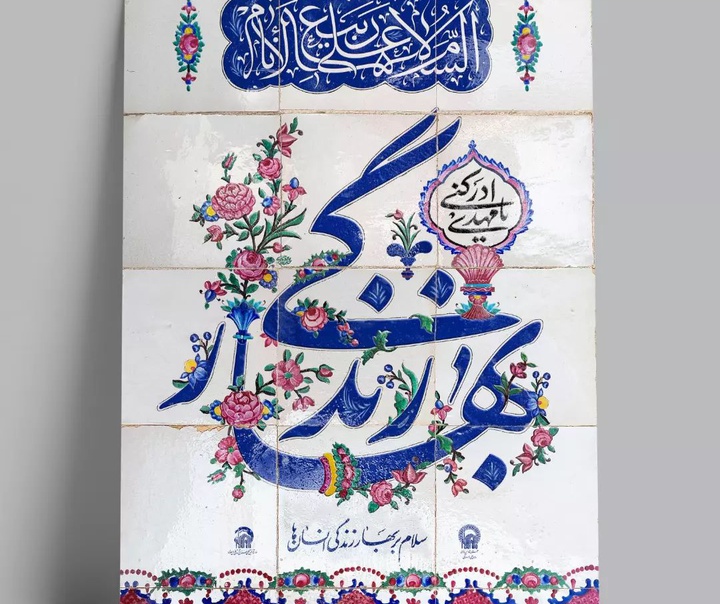 السلام علی ربیع الأنام
یا مهدی ادرکنی
بهار زندگی
سلام بر بهار زندگی انسان‌ها